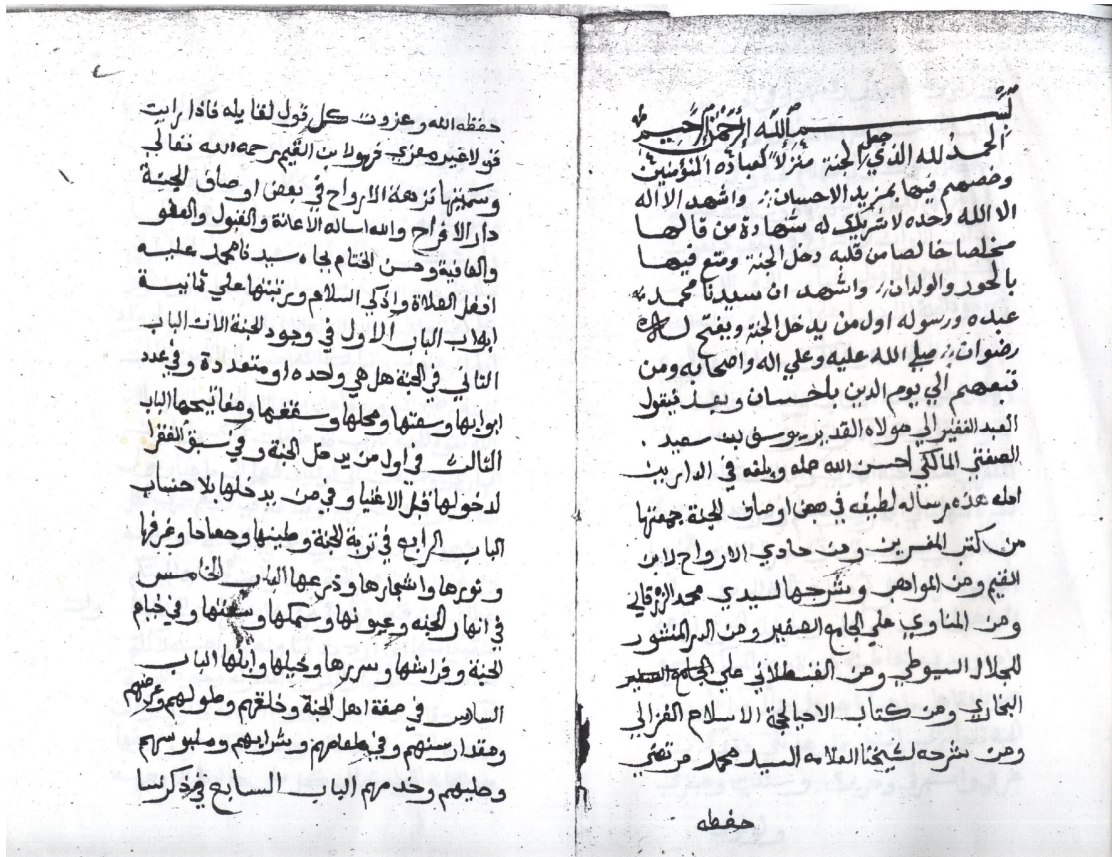 بسم الله الرحمن الرحيم
الحمد لله الذي جعل الجنة منزلا لعباده المؤمنين
وخصهم فيها بمزيد الاحسان واشهد الا اله
الا الله وحده لا شريك له شهادة من قالها
مخلصا خالصا من قلبه دخل الجنة ومتع فيها
بالحور والولدان واشهد ان سيدنا محمد
عبده ورسوله اول من يدخل الجنة ويفتح له
رضوان صلي الله عليه وعلي اله واصحابه ومن
تبعهم الي يوم الدين باحسان وبعد فيقول
العبد الفقير الي مولاه القدير يوسف بن سعيد
الصفتي المالكي احسن الله حاله وبلغه في الدارين
امله هذه رساله لطيفه في بعض اوصاف الجنة جمعتها
من كتب المفسرين ومن حادي الارواح لابن
القيم ومن المواهب وشرحها لسيدي محمد الزرقاني
ومن المناوي علي الجامع الصغير ومن الدر المنثور
للجلال السيوطي ومن القسطلاني علي الجامع الصغير
البخاري ومن كتاب الاحيا لحجة الاسلام الغزالي
ومن شرحه لشيخنا العلامه السيد محمد مرتضي
حفظه
حفظه الله وعزوت كل قول لقايله فاذا رايت
قولا غير معزي فهو لابن القيم رحمه الله تعالي
وسميتها نزهة الارواح في بعض اوصاف الجنة
دار الافراح والله اساله الاعانة والقبول والعفو
والعافية وحسن الختام بجاه سيدنا محمد عليه
افضل الصلاة وازكي السلام ورتبتها علي ثمانية
ابواب الباب الاول في وجود الجنة الان الباب
الثاني في الجنة هل هي واحده او متعددة وفي عدد
ابوابها وسعتها ومحلها وسقفها ومفاتيحها الباب
الثالث في اول من يدخل الجنة وفي سبق الفقرا
لدخولها قبل الاغنيا وفي من يدخلها بلا حساب
الباب الرابع في تربة الجنة وطينها وحصاها وغرفها
ونورها واشجارها وزرعها الباب الخامس
في انهار الجنه وعيونها وسمكها وسفنها وفي خيام
الجنة وفراشها وسررها وخيلها وابلها الباب
السادس في صفة اهل الجنة وخلقهم وطولهم وعرضهم
ومقدار سنهم وفي طعامهم وشرابهم وملبوسهم
وحليهم وخدمهم الباب السابع في ذكر نسا